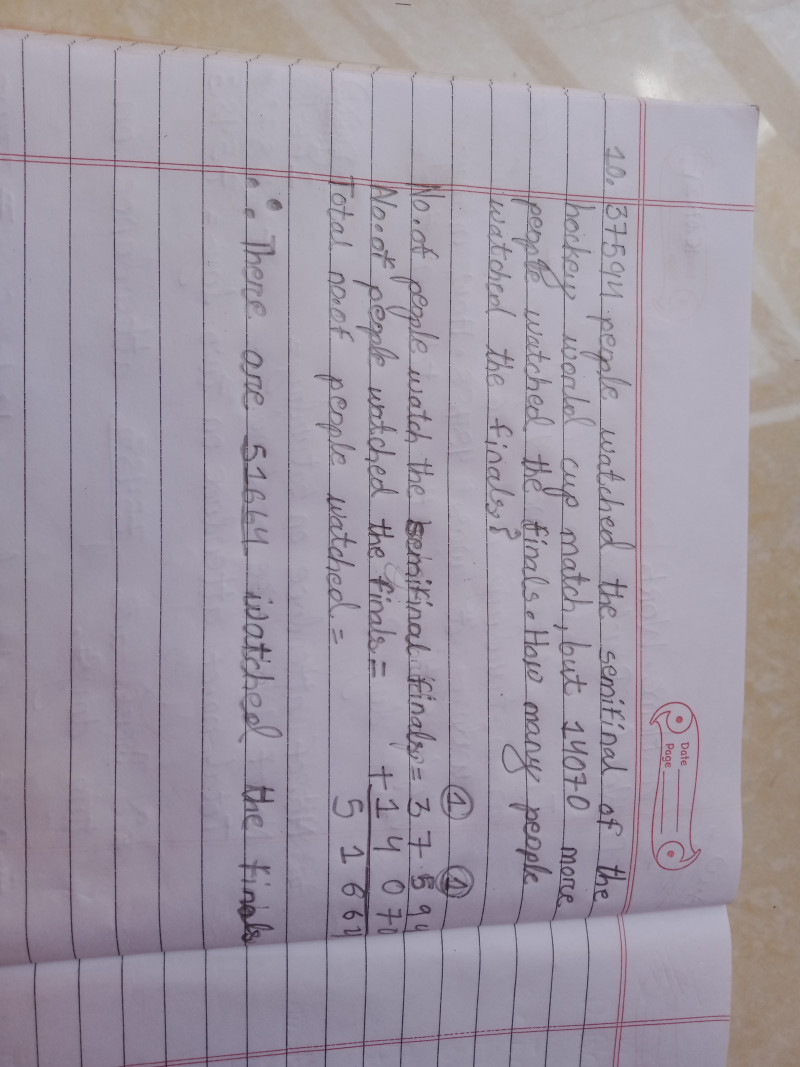 Date
Page
10. 37594 people watched the semifinal of the
hockey world cup match, but 14070 more
people watched the finals. How many people
watched the finals?
1 1
No. of people watch the semifinal finals = 37594
No. of people watched the finals = + 14070
Total no. of people watched = 51664
∴ There are 51664 watched the finals